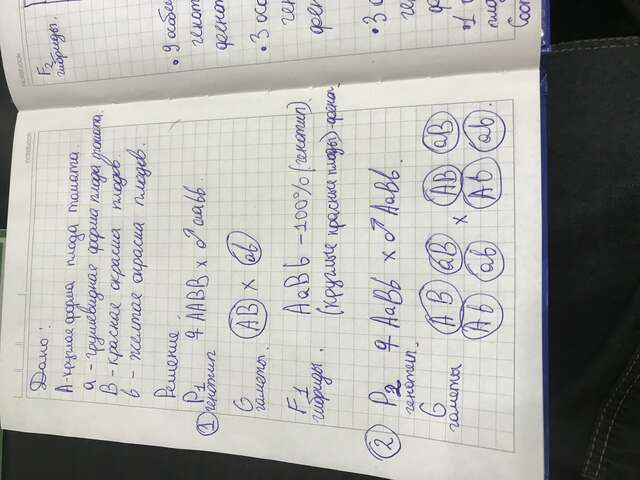 notebook
Дано:
A - круглая форма плода томата.
a - грушевидная форма плода томата.
B - красная окраска плодов.
b - желтая окраска плодов.
Решение.
1 P1 ♀ AABB x ♂ aabb.
генотип
G AB x ab
гаметы.
F1 AaBb - 100% (генотип).
гибриды. (круглые красные плоды) - фенот.
2 P2 ♀ AaBb x ♂ AaBb.
генотип.
G AB aB x AB aB
гаметы Ab ab Ab ab.
notebook
F2
гибриды.
• 9 особе
генот
фенот
• 3 осо
ген
фен
• 3 о
ге
ф
• 1
пло
Соот